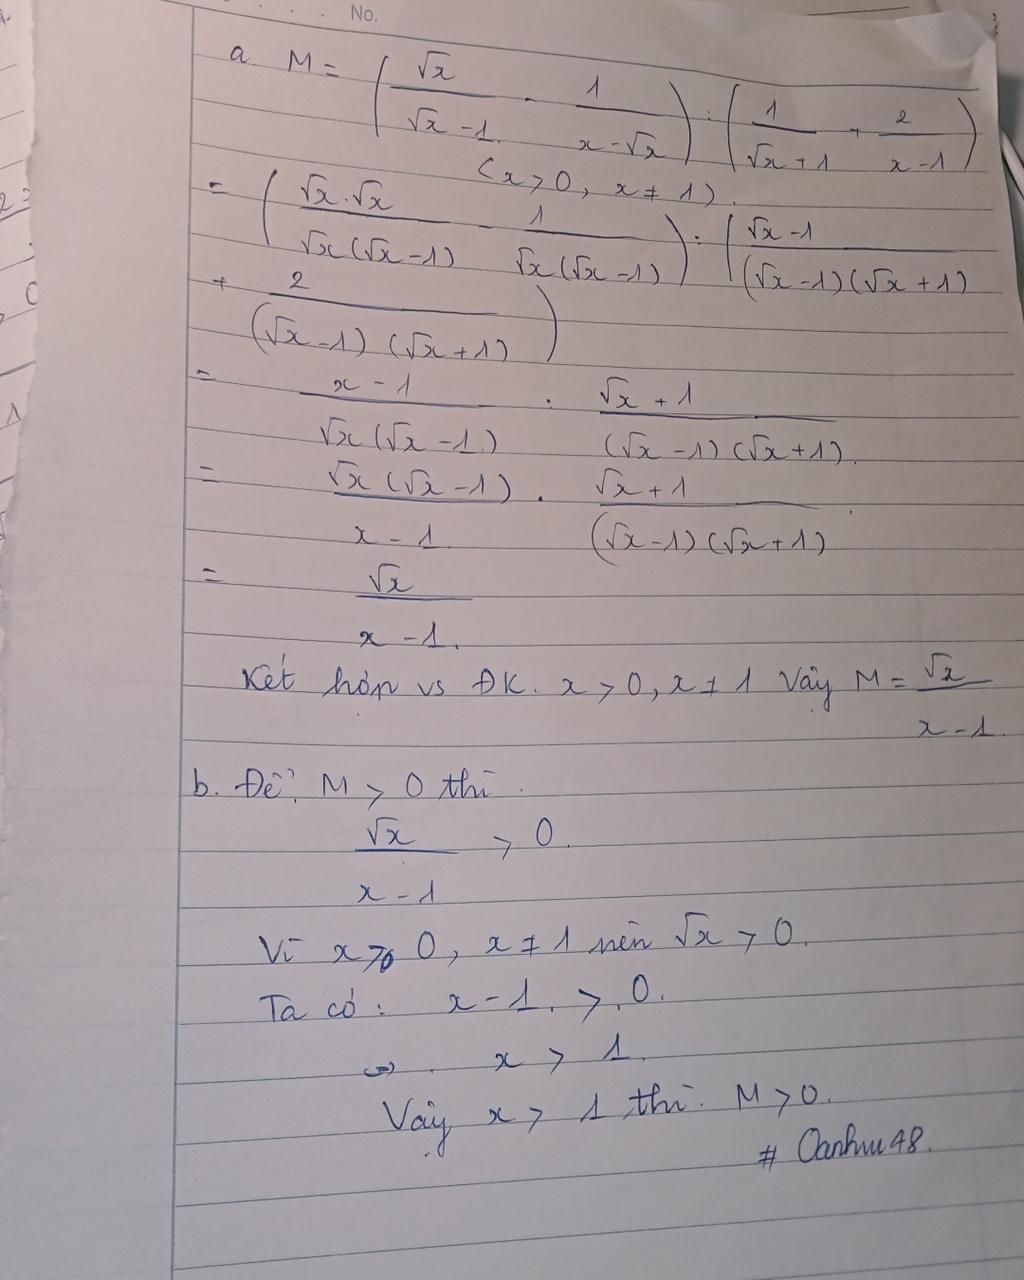 No.
a. M = ( √x / (√x - 1) - 1 / (x - √x) ) : ( 1 / (√x + 1) + 2 / (x - 1) )
( x > 0, x ≠ 1 ).
= ( √x.√x / √x(√x - 1) - 1 / √x(√x - 1) ) : ( (√x - 1) / (√x - 1)(√x + 1)
+ 2 / (√x - 1)(√x + 1) )
= (x - 1) / √x(√x - 1) : (√x + 1) / (√x - 1)(√x + 1).
= √x(√x - 1) / (x - 1) . (√x + 1) / (√x - 1)(√x + 1)
= √x / (x - 1).
Kết hợp vs ĐK. x > 0, x ≠ 1 Vậy M = √x / (x - 1)
b. Để M > 0 thì
√x / (x - 1) > 0.
Vì x > 0, x ≠ 1 nên √x > 0.
Ta có: x - 1 > 0.
⇔ x > 1.
Vậy x > 1 thì M > 0.
# Oanhuu48.